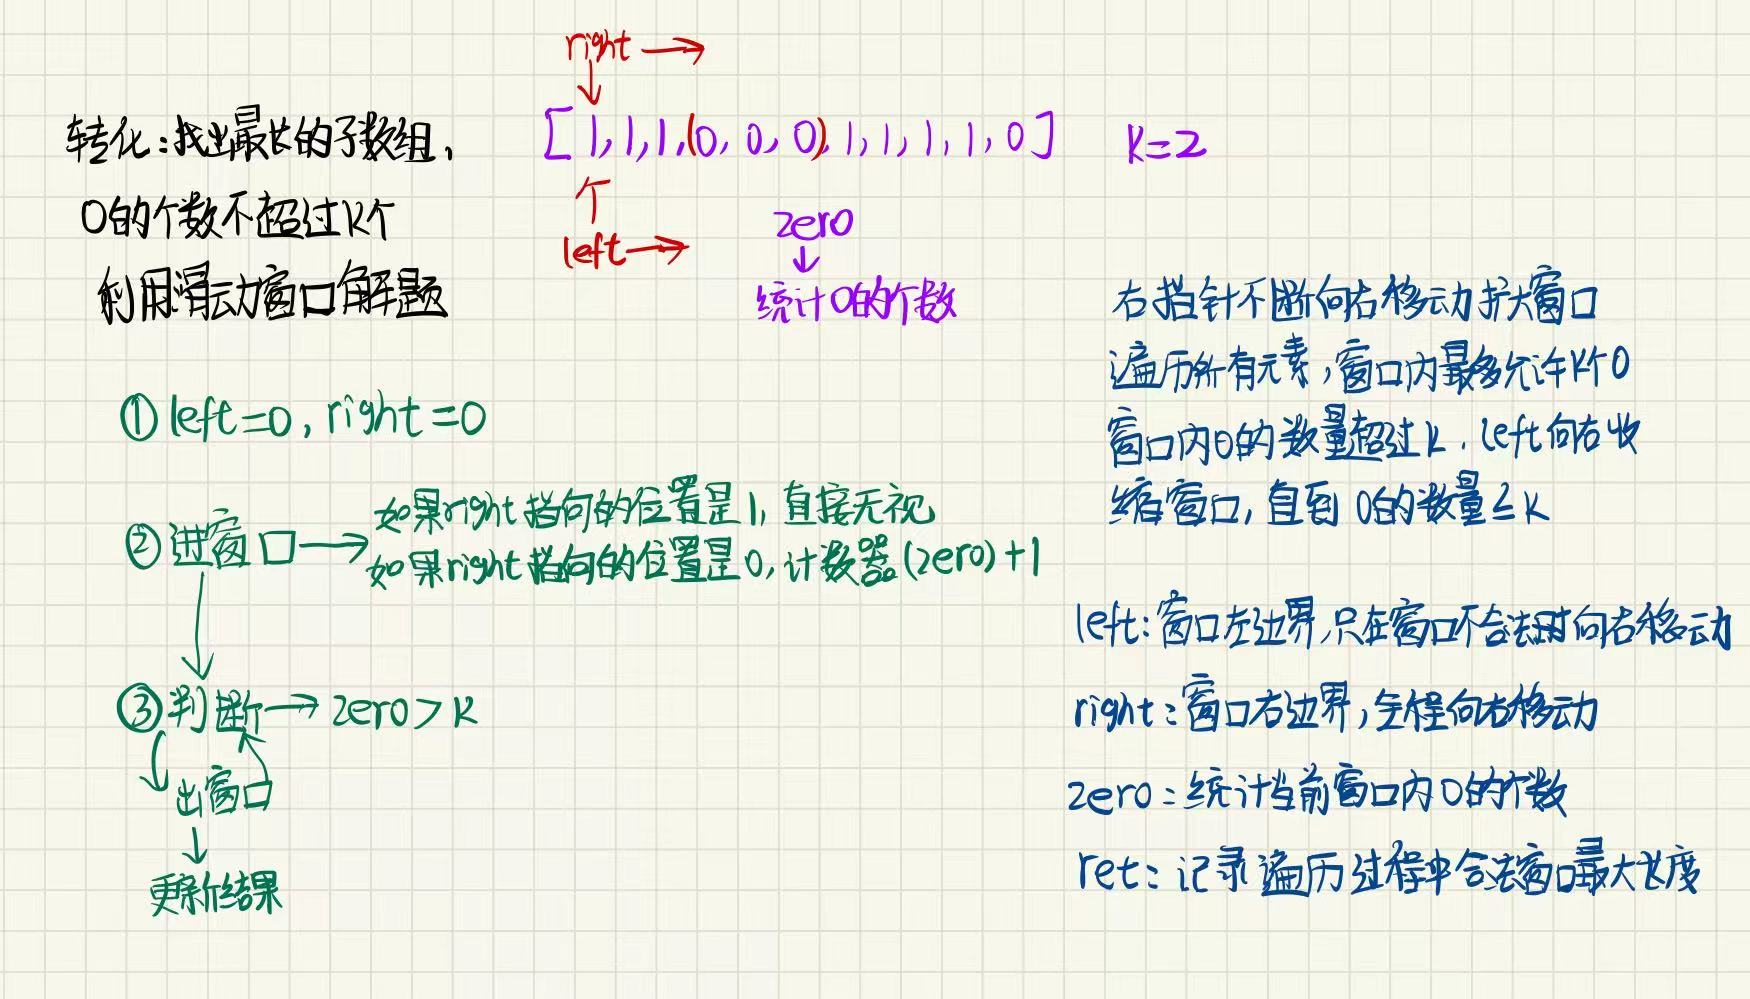 right →
转化：找出最长的子数组，
[1,1,1,(0,0,0),1,1,1,1,0] K=2
0的个数不超过K个
利用滑动窗口解题
left →
zero
↓
统计0的个数
① left=0, right=0
② 进窗口 →
如果right指向的位置是1, 直接无视
如果right指向的位置是0, 计数器(zero)+1
③ 判断 → zero>K
出窗口
更新结果
右指针不断向右移动扩大窗口
遍历所有元素,窗口内最多允许K个0
窗口内0的数量超过K，left向右收
缩窗口,直到 0的数量≤K
left:窗口左边界,只在窗口不合法时向右移动
right:窗口右边界,全程向右移动
zero:统计当前窗口内0的个数
ret:记录遍历过程中合法窗口最大长度